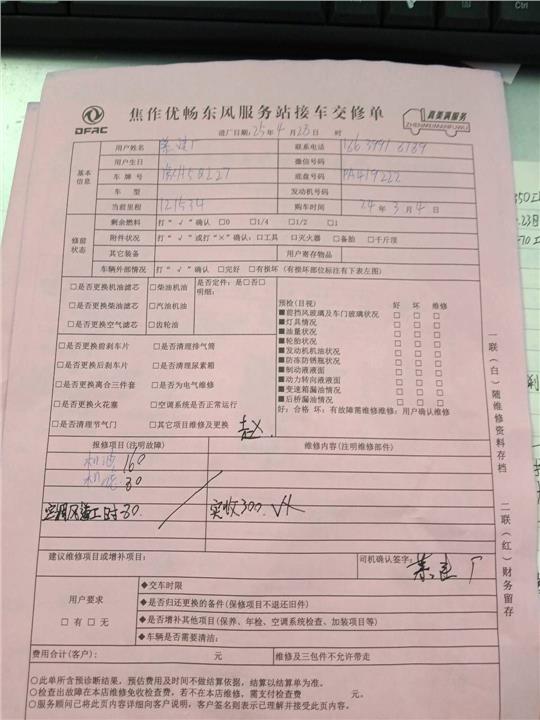 DFAC
焦作优畅东风服务站接车交修单
真柔满服务
ZHENROUMANFUWU
进厂日期:25年4月23日 时
基本信息
用户姓名
联系电话
用户生日 微信号码
车牌号 底盘号码 PA419222
车型 发动机号码
当前里程 121534 购车时间 24年3月4日
修前状态
剩余燃料 打“√”确认 □0 □1/4 □1/2 □1
附件状况 打“√”或打“×”确认:□工具 □灭火器 □备胎 □千斤顶
其它装备 用户寄存物品
车辆外部情况 打“√”确认 □完好 □有损坏(有损坏部位标注有下表左图)
□是否更换机油滤芯 □柴油机油 是否定件:是□否□
明细:
□是否更换柴油滤芯 □汽油机油
□是否更换空气滤芯 □齿轮油
□是否更换前刹车片 □是否清理排气筒
□是否更换后刹车片 □是否清理尿素箱
□是否更换离合三件套 □是否为电气维修
□是否更换火花塞 □空调系统是否正常运行
□是否清理节气门 □其它项目维修及更换
预检(目视) 好 坏 维修
■前挡风玻璃及车门玻璃状况 □ □ □
■灯具情况 □ □ □
■油量状况 □ □ □
■轮胎状况 □ □ □
■发动机机油状况 □ □ □
■防冻防锈瓶状况 □ □ □
■制动液液面 □ □ □
■动力转向液液面 □ □ □
■变速箱漏油情况 □ □ □
■后桥漏油情况 □ □ □
好:合格 坏:有故障需维修维修:用户确认维修
报修项目(注明故障) 维修内容(注明维修部件)
机油 160
机滤 30
实收300.
建议维修项目或增补项目:
司机确认签字:
用户要求
□有 □无
◆交车时限
◆是否归还更换的备件(保修项目不退还旧件)
◆是否增补其他项目(保养、年检、空调系统检查、加装项目等)
◆车辆是否需要清洁:
费用合计(客户): 元 维修及三包件不允许带走
○此单所含预诊断结果,预估费用及时间不做结算依据,结算以结算单为准。
○检查出故障在本店维修免收检查费,若不在本店维修,需支付检查费 元。
○服务顾问已将此页内容详细向客户说明,客户签名则表示已理解并接受此页内容。
一联(白)随维修资料存档
二联(红)财务留存